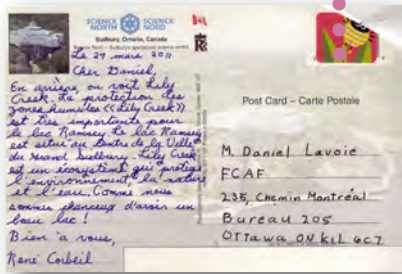 SCIENCE NORTH SCIENCE NORD
Sudbury, Ontario, Canada
Science North - Sudbury's spectacular science centre
Le 29 mars 2011
Cher Daniel,
En arrière, on voit Lily
Creek. La protection des
zones humides «Lily Creek»
est très importante pour
le lac Ramsey. Le lac Ramsey
est situé au centre de la Ville
du Grand Sudbury. Lily Creek
est un écosystème qui protège
l'environnement, la nature
et l'eau. Comme nous
sommes chanceux d'avoir un
beau lac!
Bien à vous,
René Corbeil
Post Card – Carte Postale
M. Daniel Lavoie
FCAF
235, Chemin Montréal
Bureau 205
Ottawa ON K1L 6C7